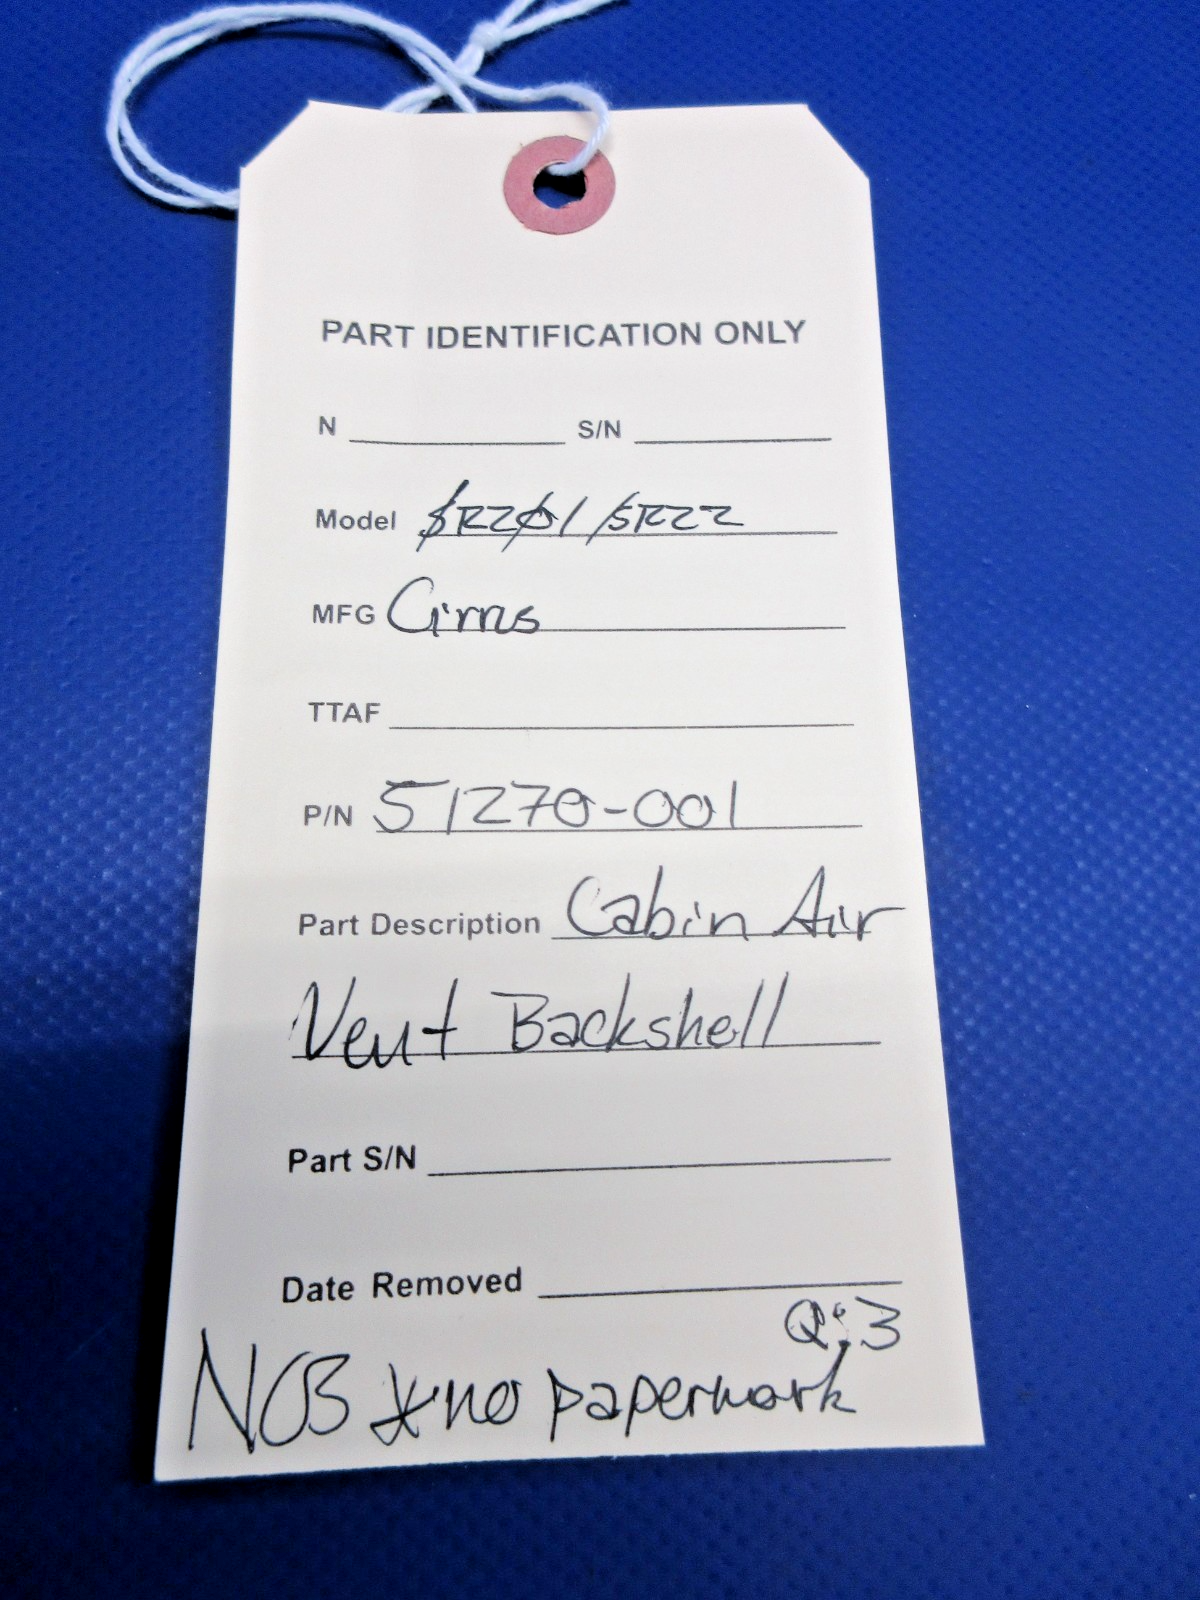 PART IDENTIFICATION ONLY
N S/N
Model SR20/ /SR22
MFG Cirrus
TTAF
P/N 51270-001
Part Description Cabin Air
Vent Backshell
Part S/N
Date Removed
Q:3
NOB *no paperwork